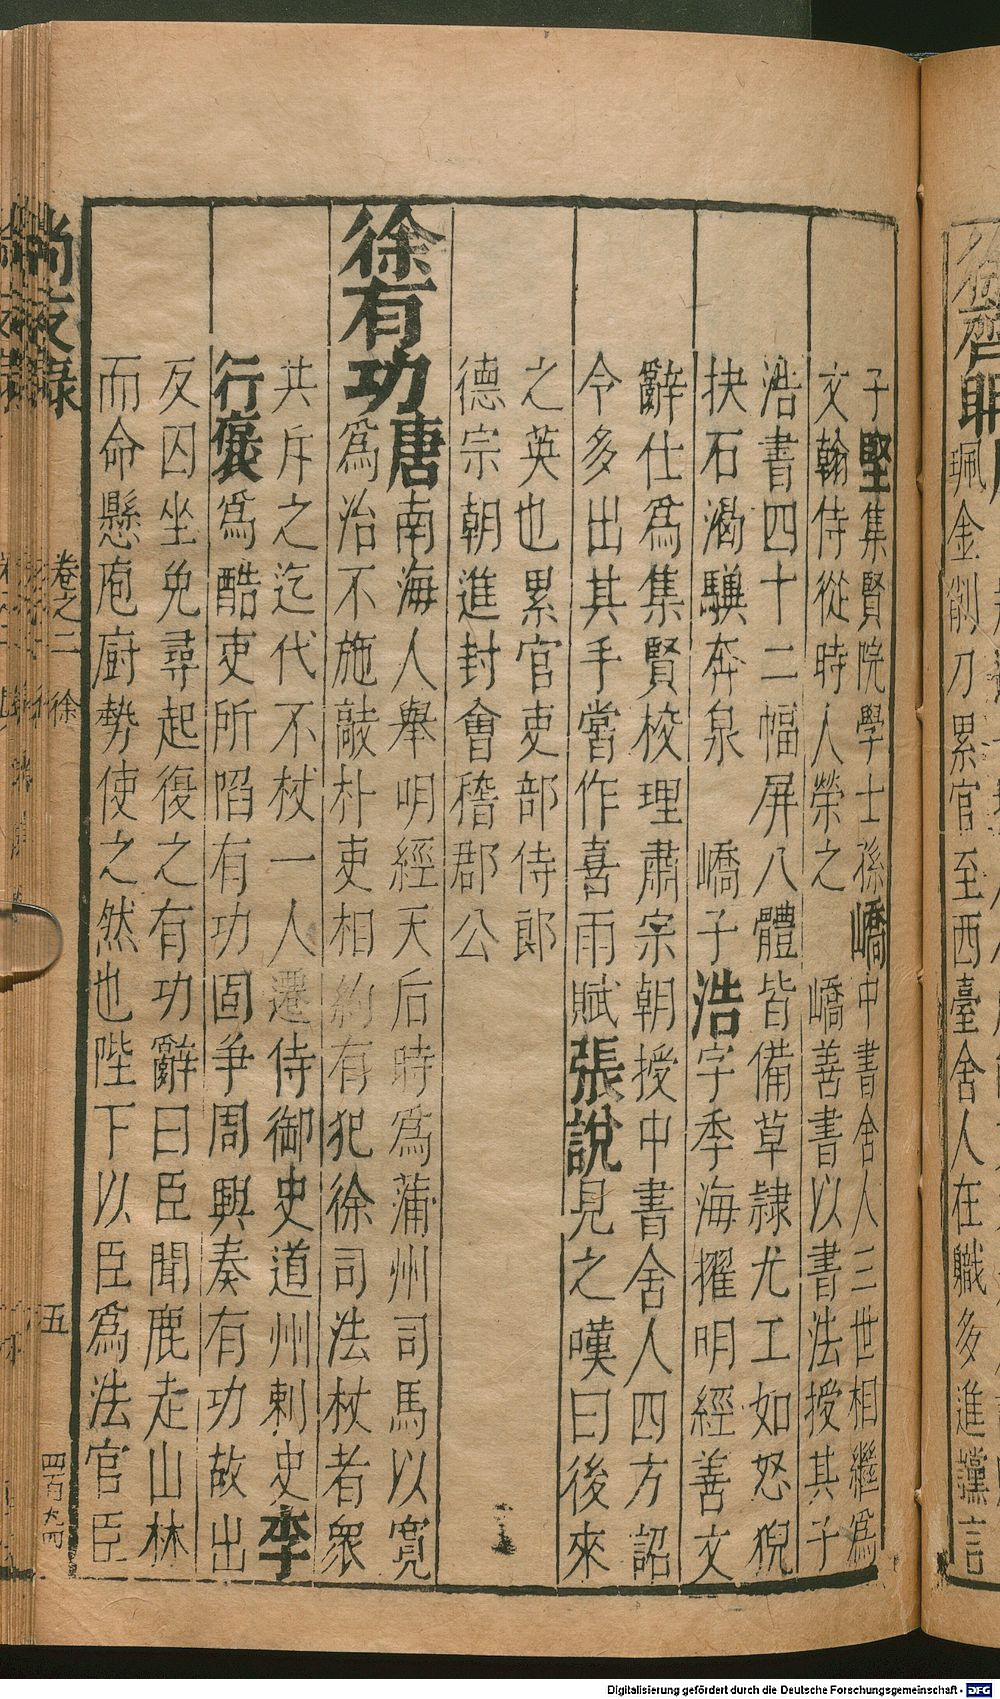 子堅集賢院學士孫嶠中書舍人三世相繼爲
文翰侍從時人榮之　嶠善書以書法授其子
浩書四十二幅屏八體皆備草隸尤工如怒猊
抉石渴驥奔泉　嶠子浩字季海擢明經善文
辭仕爲集賢校理肅宗朝授中書舍人四方詔
令多出其手嘗作喜雨賦張說見之嘆曰後來
之英也累官吏部侍郎
德宗朝進封會稽郡公
徐有功唐南海人舉明經天后時爲蒲州司馬以寬
爲治不施敲朴吏相約有犯徐司法杖者衆
共斥之迄代不杖一人遷侍御史道州刺史李
行褒爲酷吏所陷有功固爭周興奏有功故出
反囚坐免尋起復之有功辭曰臣聞鹿走山林
而命懸庖廚勢使之然也陛下以臣爲法官臣
尚友錄
卷之二　徐
五
四百九四
珮金削刀累官至西臺舍人在職多進讜言
Digitalisierung gefördert durch die Deutsche Forschungsgemeinschaft - DFG